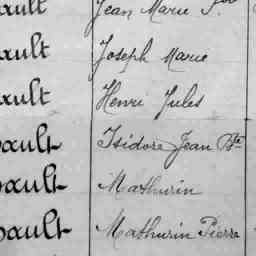 ault Jean Marie F.
ault Joseph Marie
ault Henri Jules
ault Isidore Jean Bte
ault Mathurin
ault Mathurin Pierre